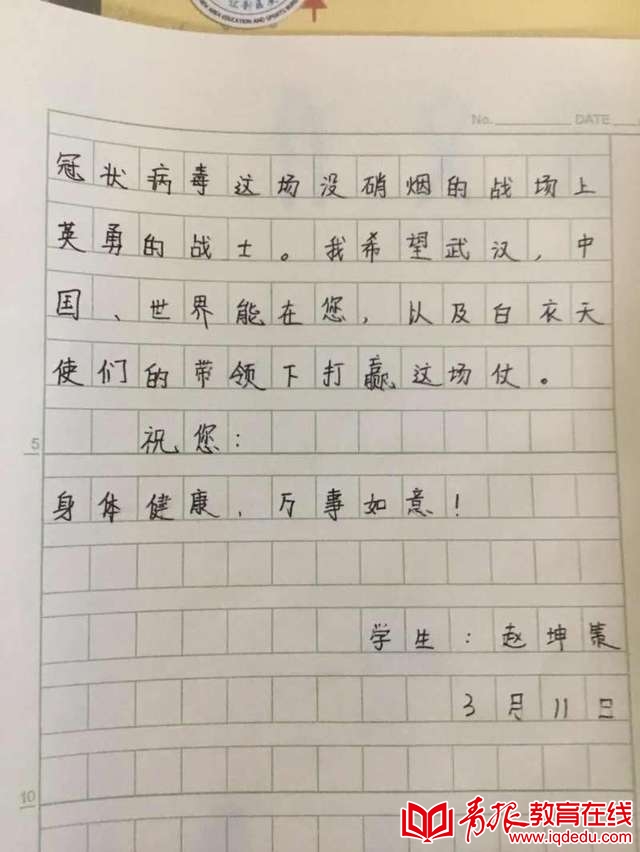 No. DATE
冠状病毒这场没硝烟的战场上
英勇的战士。我希望武汉,中
国、世界能在您,以及白衣天
使们的带领下打赢这场仗。
5
祝您:
身体健康,万事如意!
学生:赵坤策
3月11日
10
青报教育在线
www.iqdedu.com